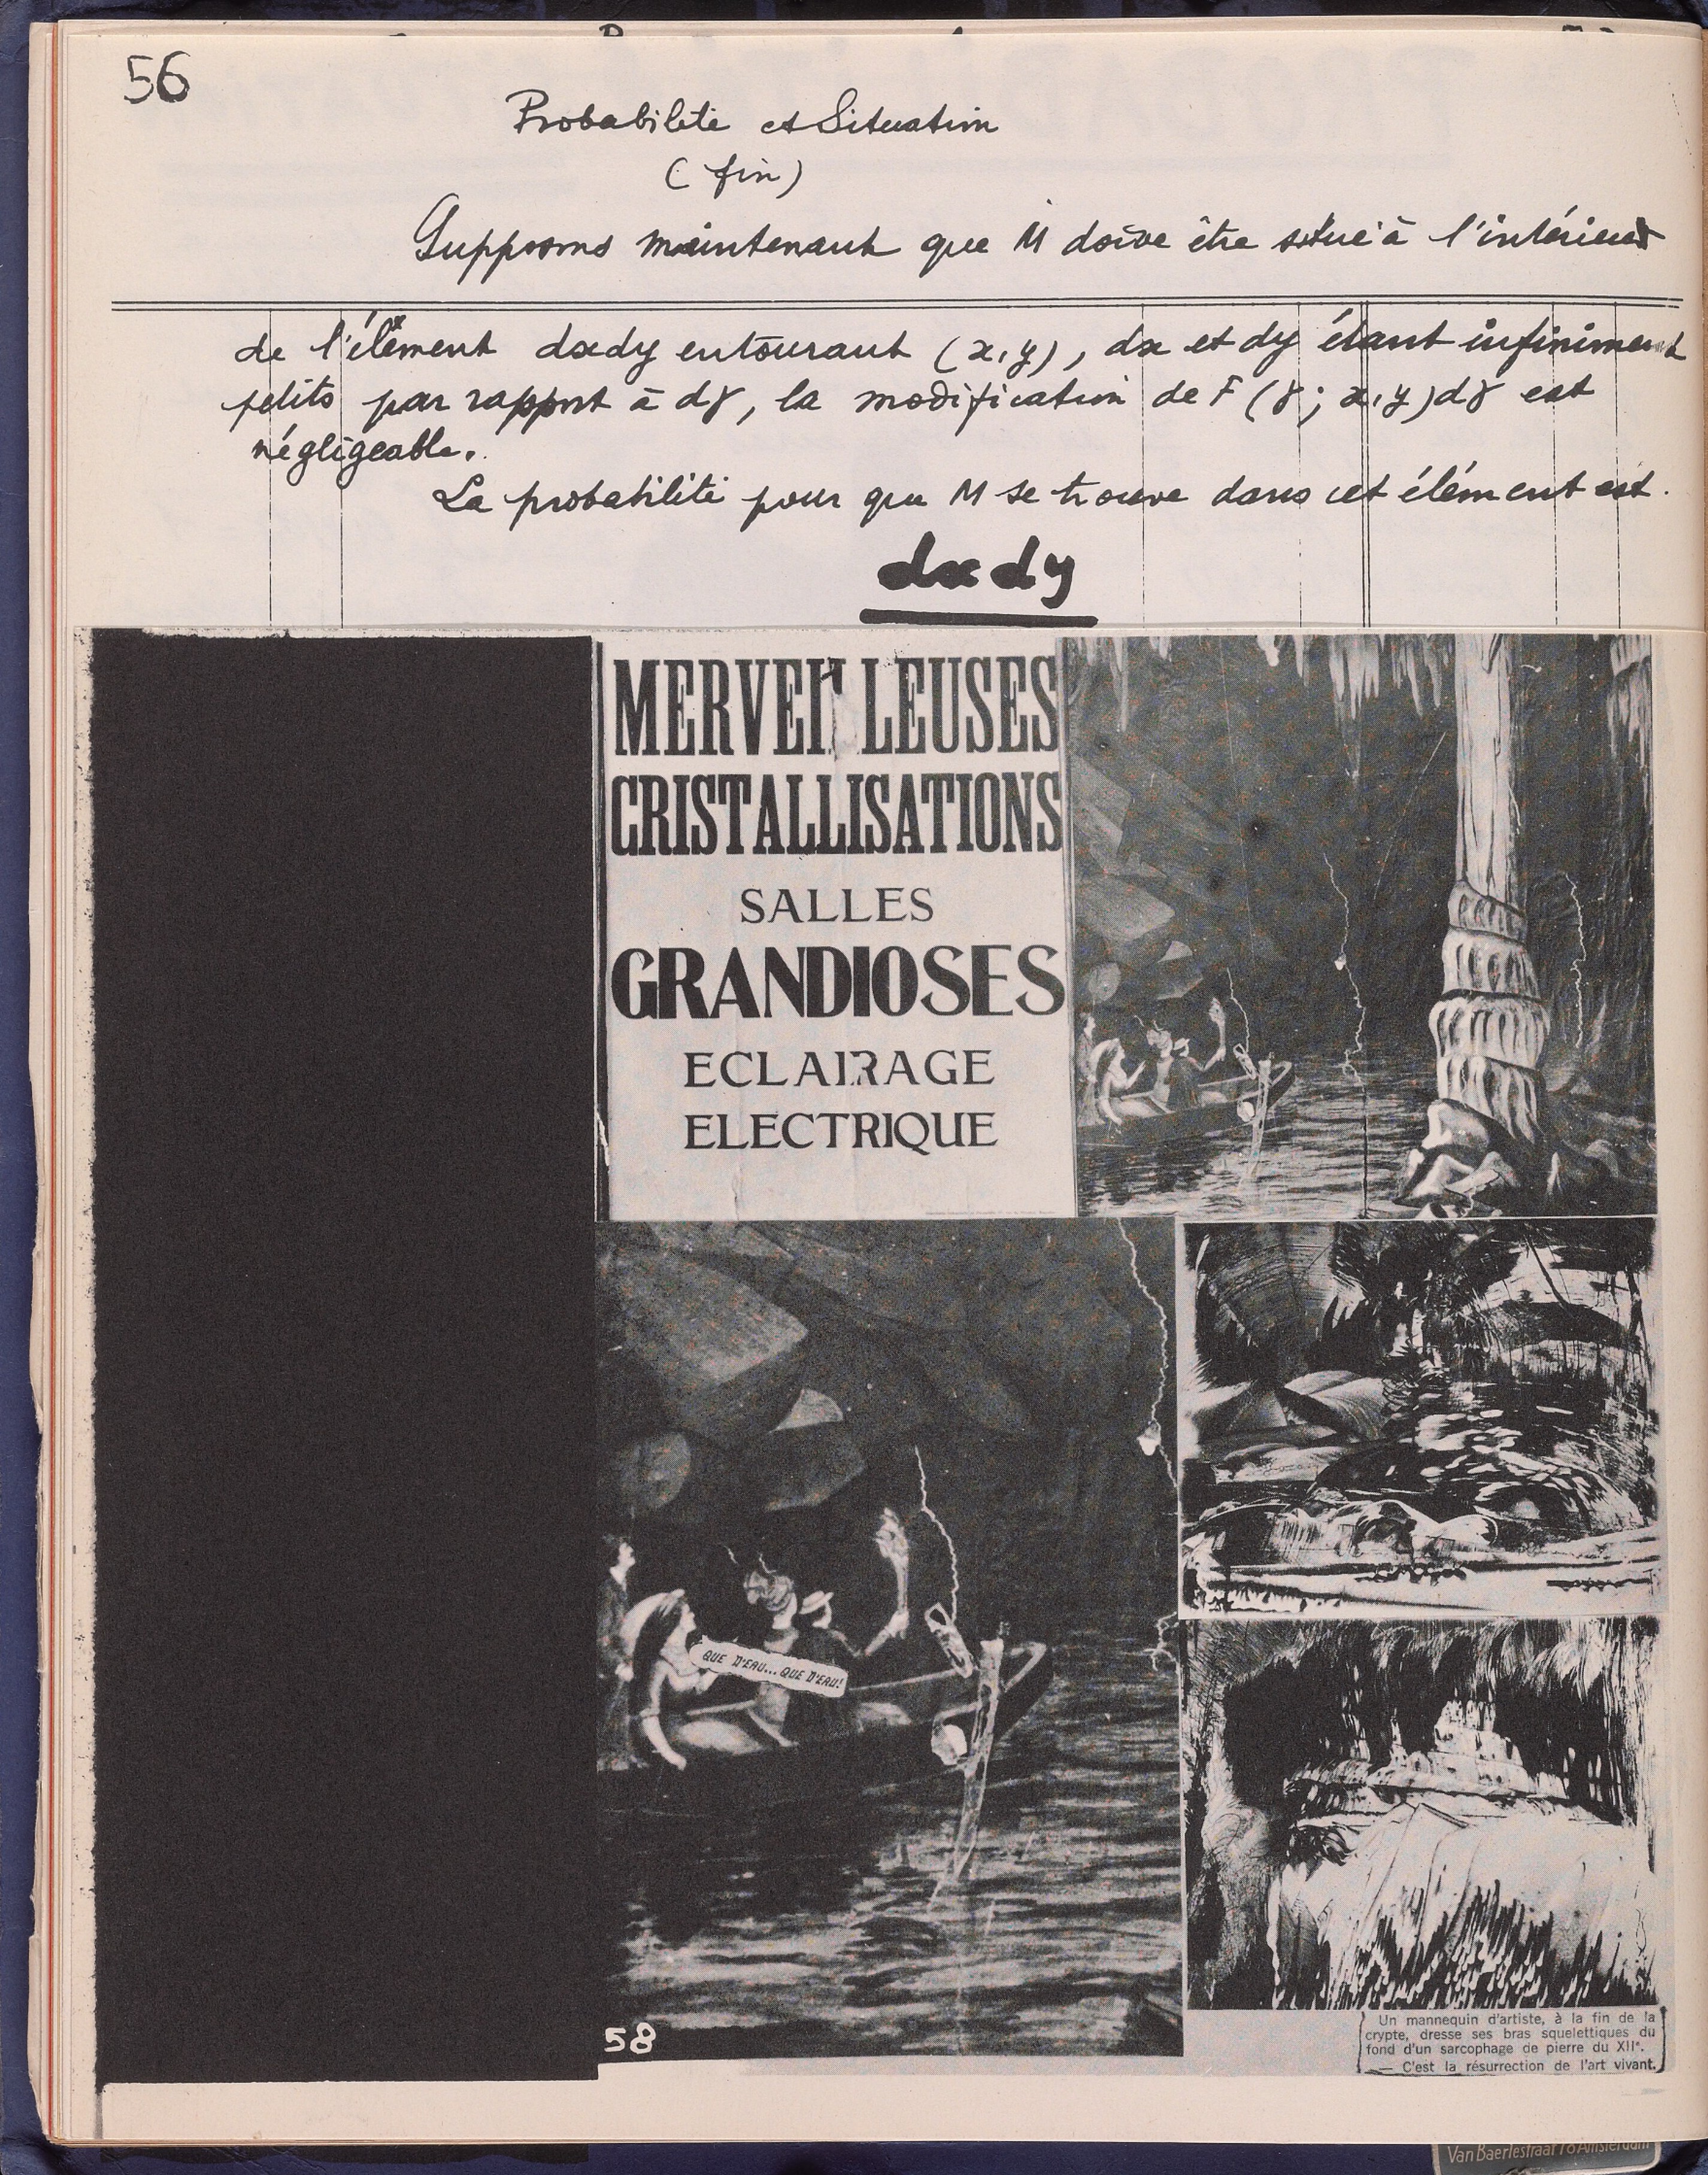 56
Probabilité et Situation
(fin)
Supposons maintenant que M doive être situé à l'intérieur
de l'élément dxdy entourant (x,y), dx et dy étant infiniment
petits par rapport à dγ, la modification de F (γ; x,y)dγ est
négligeable.
La probabilité pour que M se trouve dans cet élément est.
dxdy
MERVEILLEUSES
CRISTALLISATIONS
SALLES
GRANDIOSES
ECLAIRAGE
ELECTRIQUE
QUE D'EAU... QUE D'EAU!
58
Un mannequin d'artiste, à la fin de la
crypte, dresse ses bras squelettiques du
fond d'un sarcophage de pierre du XIIe.
— C'est la résurrection de l'art vivant.
Van Baerlestraat 78 Amsterdam